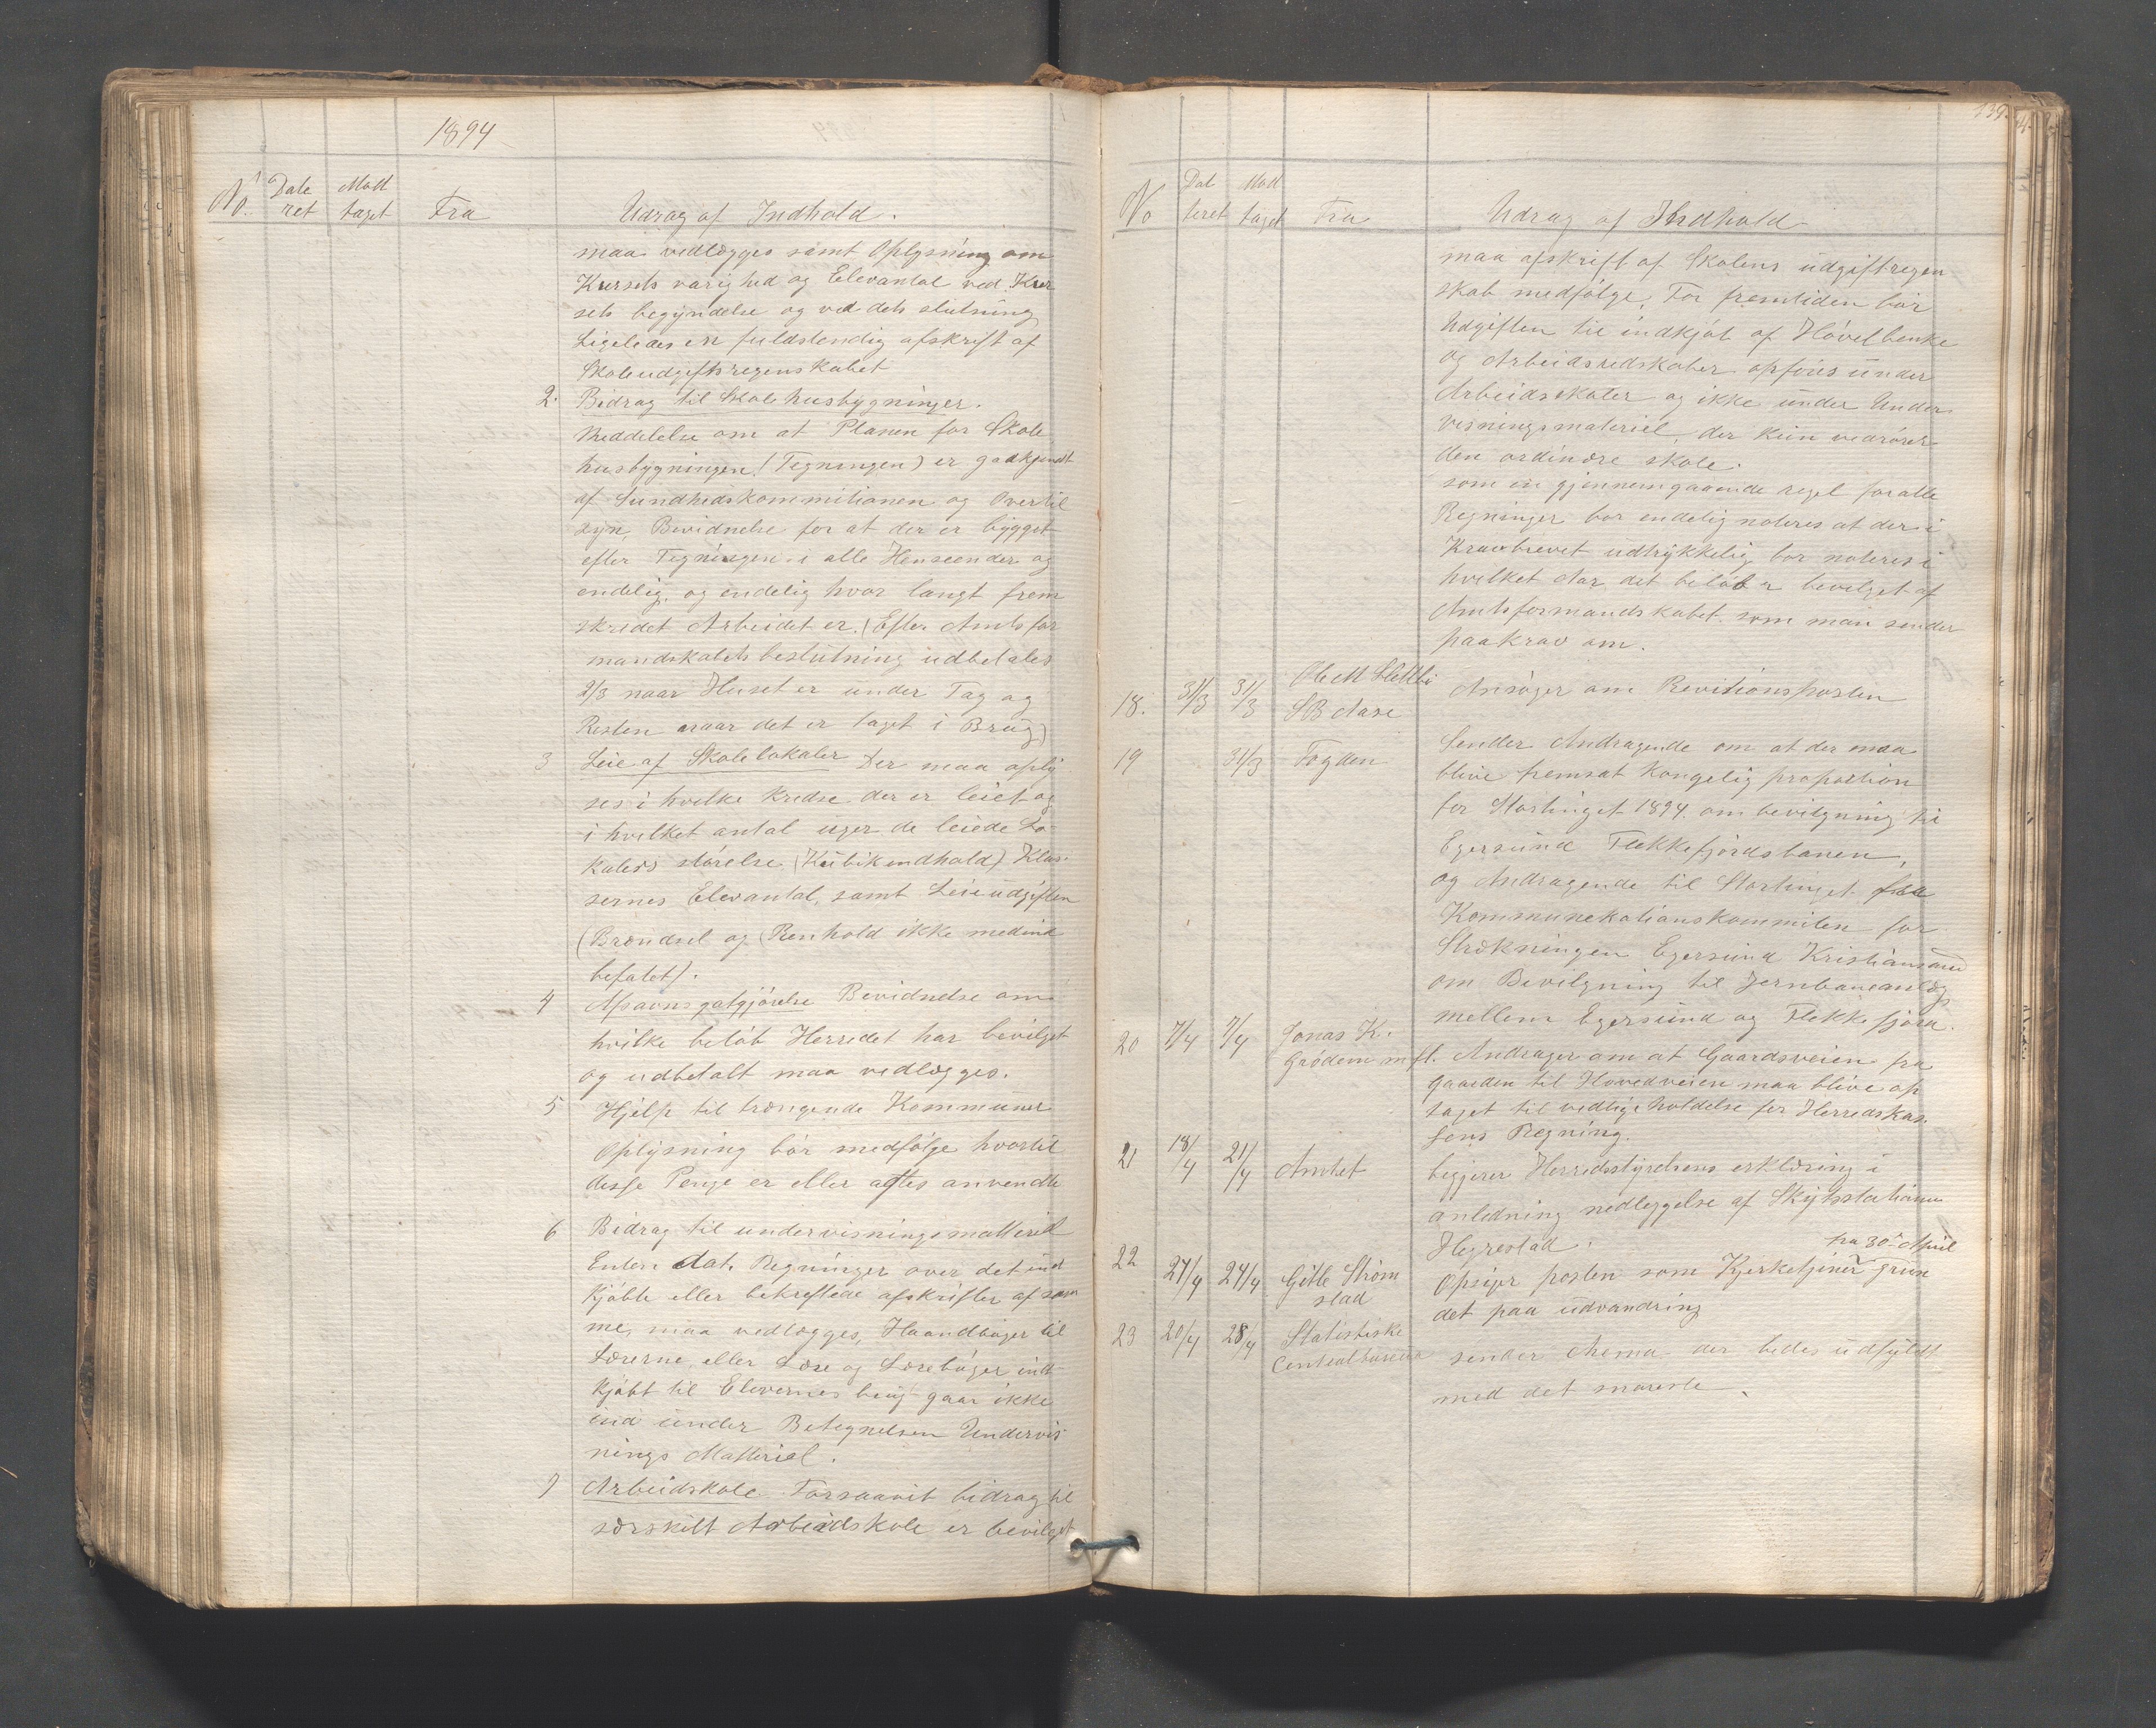 1894
No. Date
ret Mod
taget Fra Udrag af Indhold.
maa vedlægges samt Oplysning om
Kursets varighed og Elevantal ved Kur
sets begyndelse og ved dets slutning
Ligeledes en fuldstendig afskrift af
Skoleudgiftsregenskabet
2. Bidrag til Skolehusbygninger.
Meddelelse om at Planen for Skole
husbygningen (Tegningen) er godkjendt
af Sundhedskommitionen og Overtil
syn, Bevidnelse for at der er bygget
efter Tegningen i alle Henseender og
endelig, og endelig hvor langt frem
skredet Arbeidet er. (Efter Amtsfor
mandskabets beslutning udbetales
2/3 naar Huset er under Tag og
Resten naar det er taget i Brug)
3 Leie af Skolelokaler Der maa oply
ses i hvilke Kredse der er leiet og
i hvilket antal uger de leiede Lo
kalers störelse (Kubikindhold) Klas
sernes Elevantal, samt Leieudgiften
(Brendsel og Renhold ikke medind
befatet).
4 Apavnsgatgjörelse Bevidnelse om
hvilke belöb Herredet har bevilget
og udbetalt maa vedlægges.
5 Hjelp til trængende Kommuner
Oplysning bör medfölge hvortil
disse Penge er eller agtes anvendte
6 Bidrag til undervisningsmatteriel
Enten dat. Regninger over det ind
Kjöbte eller bekreftede afskrifter af sam
me, maa vedlægges, Haandböger til
Lærerne, eller Læse og Lærebøger ind
kjöbt til Elevernes brug gaar ikke
ind under Betegnelsen Undervis
nings Matterial.
7 Arbeidskole Forsaavit bidrag til
særskilt Arbeidskole er bevilget
139
No Dat
teret Mod
taget Fra Udrag af Indhold
maa afskrift af Skolens udgiftregen
skab medfölge. For fremtiden bör
Udgiften til indkjöb af Hövelbenke
og Arbeidsredskaber opföris under
Arbeidsskoler og ikke under Under
visningsmateriel, der kun vedrörer
den ordinære skole.
som en gjennemgaaende regel for alle
Regninger bor endelig noteres at der i
Kravbrevet udtrykkelig bor noteres i
hvilket Aar det belöb er bevilget af
Amtsformandskabet som man sender
paakrav om.
18. 31/3 31/3 Ole M
S B Aase Ansöger om Revitionsposten
19 31/3 Fogden Sender Andragende om at der maa
blive fremsat Kongelig propostion
for Stortinget 1894 om bevilgning til
Egersund Flekkefjordsbanen,
og Andragende til Stortinget fra
Kommunekationskommiten for
Strækningen Egersund Kristiansand
om Bevilgning til Jernbaneanlæg
mellem Egersund og Flekkefjord.
20 7/4 7/4 Jonas K.
Grödem m fl. Andrager om at Gaardsveien fra
gaarden til Hovedveien maa blive op
taget til vedligeholdelse for Herredskas
sens Regning.
21 18/4 21/4 Amtet begjerer Herredsstyrelsens erklæring i
anledning nedleggelse af Skydsstationen
Hegrestad.
22 24/4 24/4 Gitle Ström
stad Opsiger posten som Kjerketjener fra 30te April grun
det paa udvandring
23 20/4 28/4 Statistiske
Centralbureau sender skema der bedes udfyldt
med det snareste.